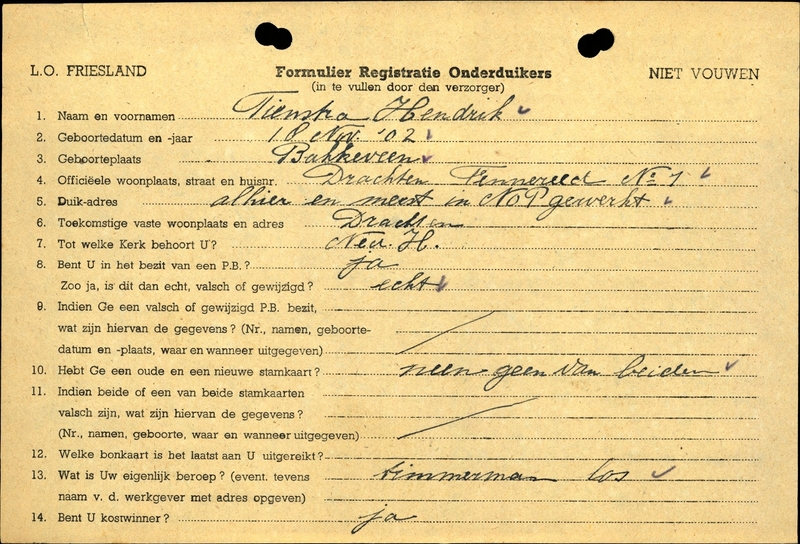 L.O. FRIESLAND Formulier Registratie Onderduikers NIET VOUWEN
(in te vullen door den verzorger)
1. Naam en voornamen Tienstra Hendrik
2. Geboortedatum en -jaar 18 Nov. '02
3. Geboorteplaats Bakkeveen
4. Officiëele woonplaats, straat en huisnr. Drachten Fennereed No 1
5. Duik-adres alhier en meest in NOP gewerkt
6. Toekomstige vaste woonplaats en adres Drachten
7. Tot welke Kerk behoort U? Ned. H.
8. Bent U in het bezit van een P.B.? ja
Zoo ja, is dit dan echt, valsch of gewijzigd? echt
9. Indien Ge een valsch of gewijzigd P.B. bezit,
wat zijn hiervan de gegevens? (Nr., namen, geboorte-
datum en -plaats, waar en wanneer uitgegeven)
10. Hebt Ge een oude en een nieuwe stamkaart? neen geen van beiden
11. Indien beide of een van beide stamkaarten
valsch zijn, wat zijn hiervan de gegevens?
(Nr., namen, geboorte, waar en wanneer uitgegeven)
12. Welke bonkaart is het laatst aan U uitgereikt?
13. Wat is Uw eigenlijk beroep? (event. tevens timmerman los
naam v. d. werkgever met adres opgeven)
14. Bent U kostwinner? ja